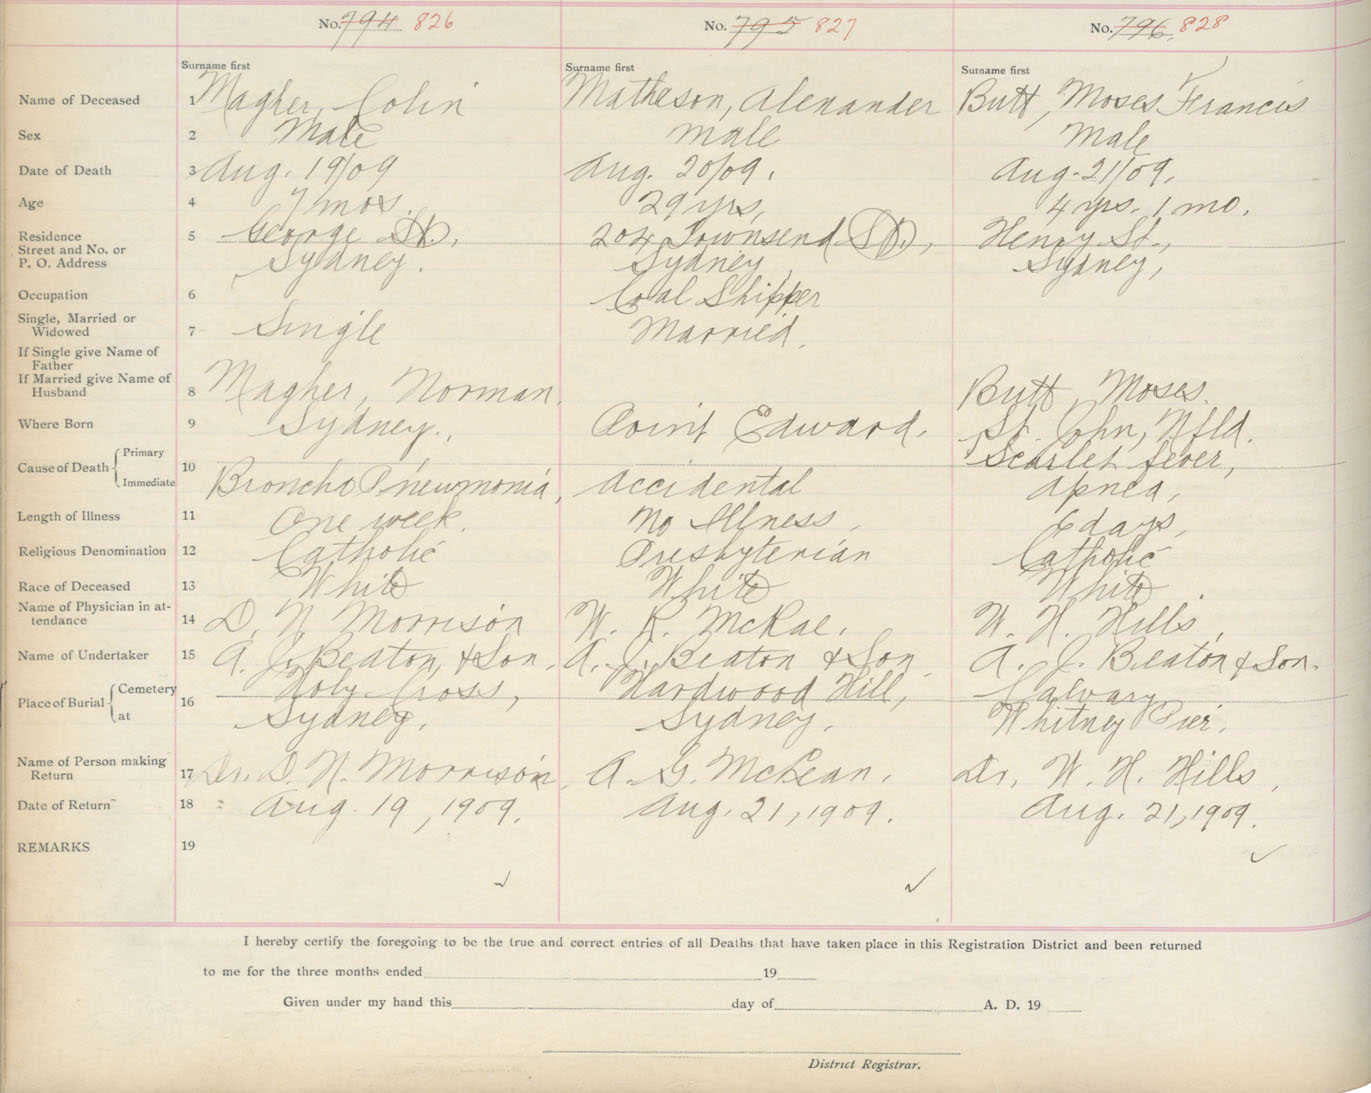 No. 794 826 No. 795 827 No. 796. 828
Surname first Surname first Surname first
Name of Deceased 1 Magher, Colin Matheson, Alexander Butt, Moses Francis
Sex 2 Male Male Male
Date of Death 3 Aug. 19/09 Aug. 20/09. Aug. 21/09.
Age 4 7 mos. 29 yrs, 4 yrs. 1 mo.
Residence 5 George St., 204 Townsend St., Henry St.,
Street and No. or
P. O. Address Sydney. Sydney, Sydney,
Occupation 6 Coal Shipper
Single, Married or
Widowed 7 Single Married.
If Single give Name of
Father
If Married give Name of
Husband 8 Magher, Norman. Butt, Moses.
Where Born 9 Sydney., Point Edward. St. John, Nfld.
Cause of Death Primary 10 Scarlet fever,
Immediate Broncho Pneumonia, Accidental Apnea,
Length of Illness 11 One week. No Illness. 6 days,
Religious Denomination 12 Catholic Presbyterian Catholic
Race of Deceased 13 White White White.
Name of Physician in at-
tendance 14 D. N. Morrison W. R. McRae. W. H. Hills,
Name of Undertaker 15 A. J. Beaton, & Son. A. J. Beaton & Son A. J. Beaton & Son.
Place of Burial Cemetery 16 Holy Cross, Hardwood Hill, Calvary
at Sydney. Sydney. Whitney Pier.
Name of Person making
Return 17 Dr. D. N. Morrison, A. G. McLean. Dr. W. H. Hills,
Date of Return 18 Aug. 19, 1909. Aug. 21, 1909. Aug. 21, 1909.
REMARKS 19
I hereby certify the foregoing to be the true and correct entries of all Deaths that have taken place in this Registration District and been returned
to me for the three months ended 19
Given under my hand this day of A. D. 19
District Registrar.